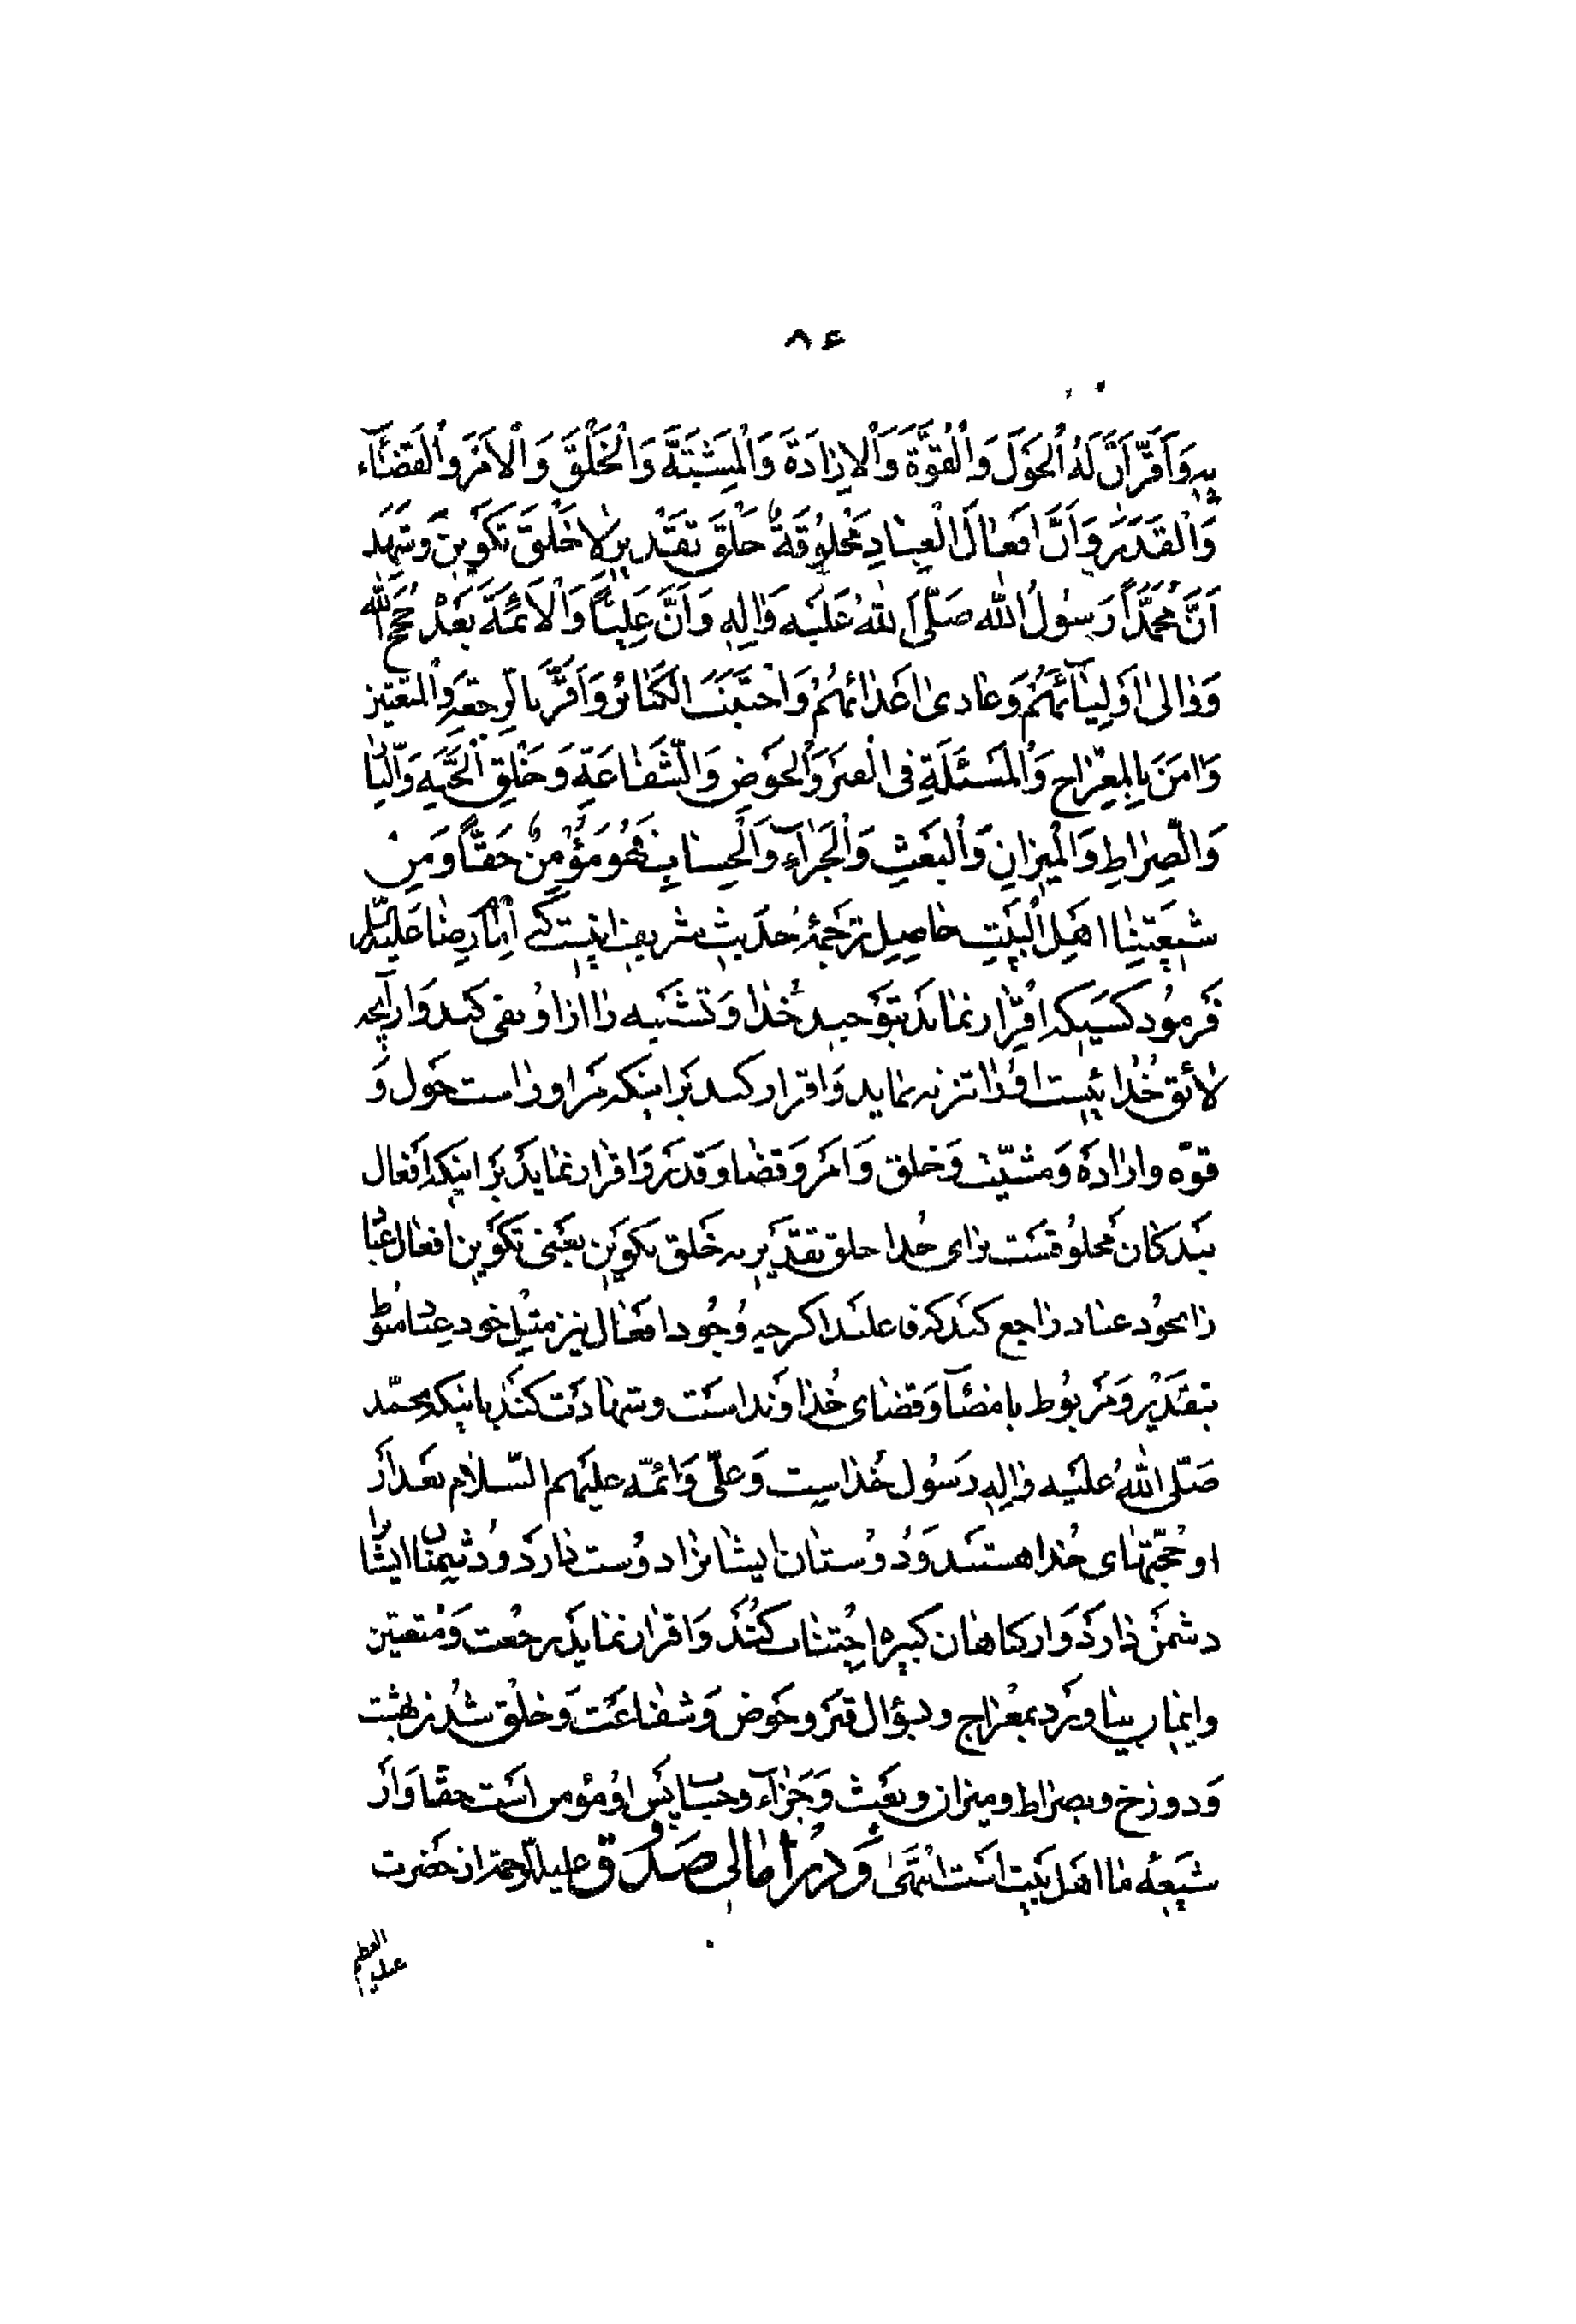 ٨٤
بِهِ وَاَقَرَّ اَنَّ لَهُ الْحَوْلَ وَالْقُوَّةَ وَالْاِرٰادَةَ وَالْمَشِيَّةَ وَالْخَلْقَ وَالْاَمْرَ وَالْقَضٰٓاءَ
وَالْقَدَرَ وَاَنَّ اَفْعٰالَ الْعِبٰادِ مَخْلُوقَةٌ خَلْقَ تَقْدِيرٍ لٰا خَلْقَ تَكْوِينٍ وَشَهِدَ
اَنَّ مُحَمَّداً رَسُولُ اللّٰهِ صَلَّى اللّٰهُ عَلَيْهِ وَاٰلِهِ وَاَنَّ عَلِيّاً وَالْاَئِمَّةَ بَعْدَهُ حُجَجُ اللّٰهِ
وَوٰالىٰ اَوْلِيٰٓائَهُمْ وَعٰادىٰ اَعْدٰائَهُمْ وَاجْتَنَبَ الْكَبٰائِرَ وَاَقَرَّ بِالرَّجْعَةِ وَالْمُتْعَتَيْنِ
وَاٰمَنَ بِالْمِعْرٰاجِ وَالْمَسْئَلَةِ فِى الْقَبْرِ وَالْحَوْضِ وَالشَّفٰاعَةِ وَخَلْقِ الْجَنَّةِ وَالنّٰارِ
وَالصِّرٰاطِ وَالْمِيزٰانِ وَالْبَعْثِ وَالْجَزٰآءِ وَالْحِسٰابِ فَهُوَ مُؤْمِنٌ حَقّاً وَمِنْ
شِيعَتِنٰا اَهْلِ الْبَيْتِ حاصل ترجمهٔ حدیث شریف اینست که امام رضا علیه السلام
فرمود کسیکه اقرار نماید بتوحید خدا و تشبیه را از او نفی کند و از آنچه
لائق خدا نیست او را تنزیه نماید و اقرار کند بر اینکه مر او راست حول و
قوّه و اراده و مشیّت و خلق و امر و قضا و قدر و اقرار نماید بر اینکه افعال
بندکان مخلوقست برای خدا خلق تقدیر نه خلق تکوین یعنی تکوین افعال عباد
را بخود عباد راجع کند که فاعلند اکرچه وجود افعال نیز مثل خود عباد منوط
بتقدیر و مربوط بامضآ و قضای خداوند است و شهادت کند باینکه محمّد
صلّی اللّٰه علیه و اله رسول خداست و علی و ائمّه علیهم السّلام بعد از
او حجّتهای خدا هستند و دوستان ایشانرا دوست دارد و دشمنان ایشانرا
دشمن دارد و از کناهان کبیره اجتناب کند و اقرار نماید برجعت و متعتین
و ایمان بیاورد بمعراج و سؤال قبر و حوض و شفاعت و خلق شدن بهشت
و دوزخ و بصراط و میزان و بعث و جزآء و حساب پس او مؤمن است حقّا و از
شیعهٔ ما اهل بیت است انتهی و در امالی صدوق علیه الرّحمة از حضرت